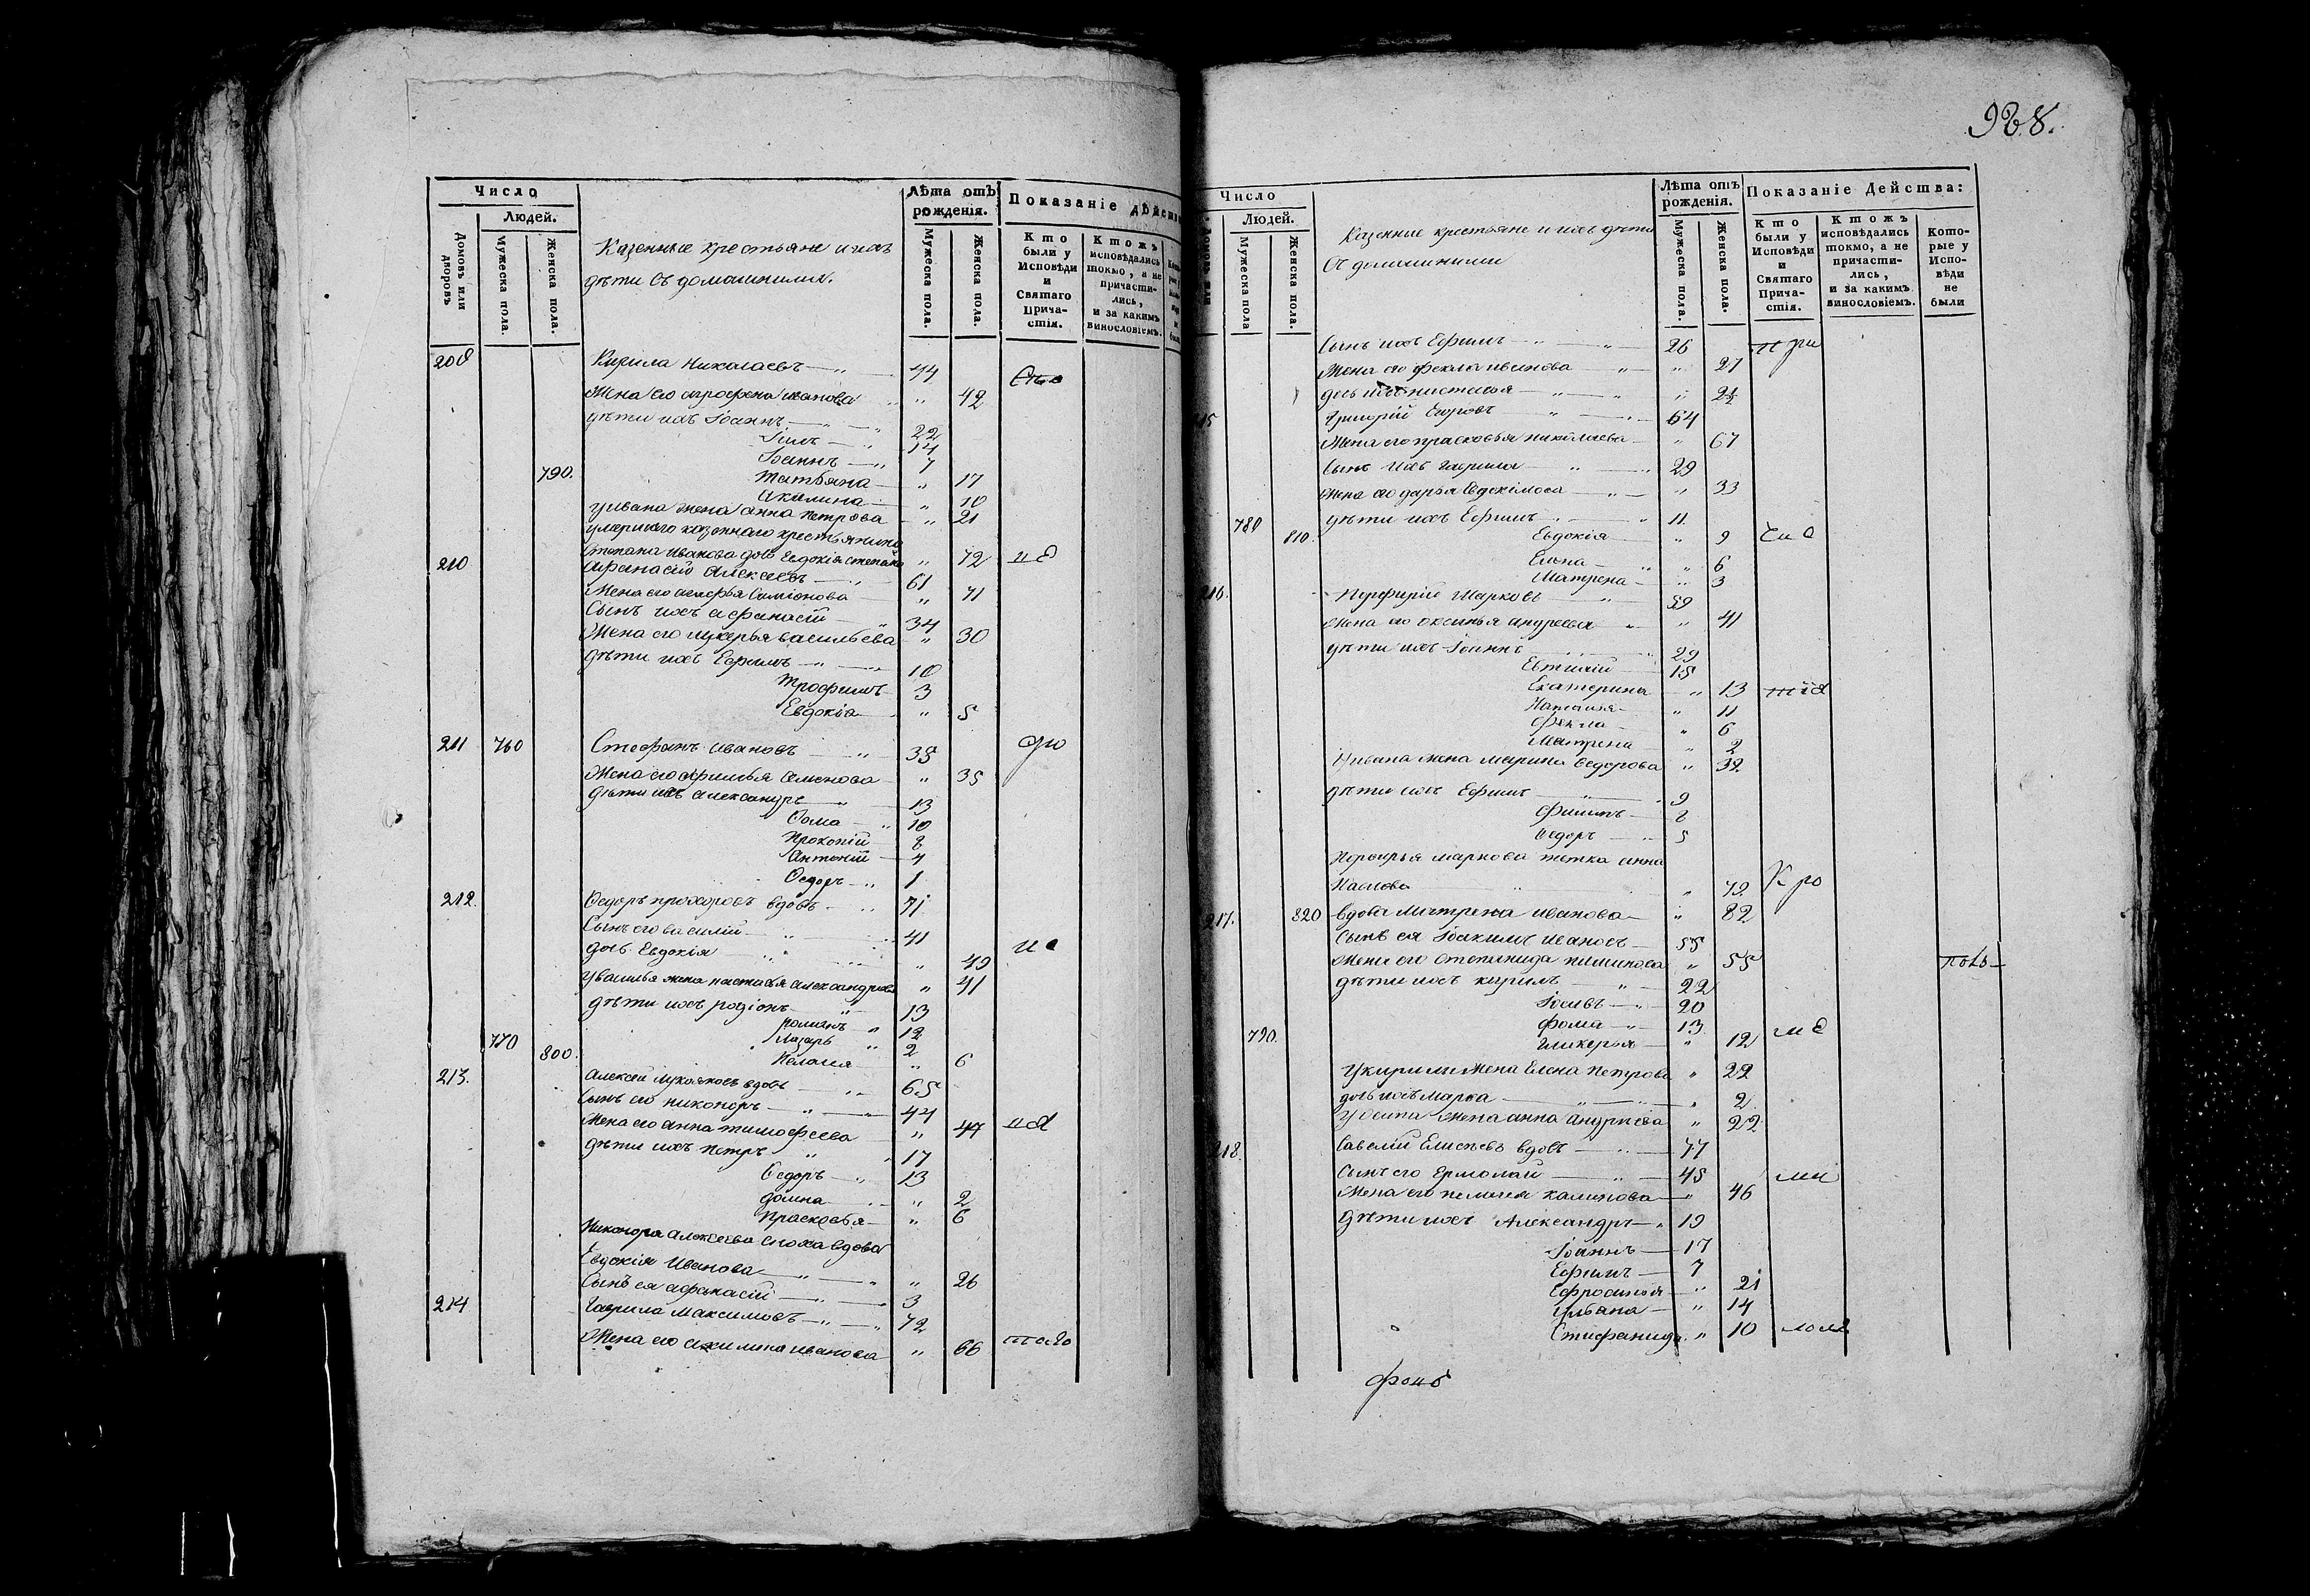 Число
Людей.
Домовъ или дворовъ
Мужеска пола.
Женска пола.
Казенные крестьяне и ихъ
дѣти съ домашними.
Лѣта отъ рожденія.
Мужеска пола.
Женска пола.
Показаніе дѣйст
Кто были у Исповѣди и Святаго Прича-стія.
Ктожъ исповѣдались токмо, а не причасти-лись, и за какимъ винословіемъ.
Кирила Николаевъ 44
Жена его Агрофена Иванова 42
дѣти ихъ Іоаннъ 22
14
Іоаннъ 7
790. Татьяна 17
Акилина 10
у Ивана жена Анна Петрова 21
умершаго казеннаго крестьянина
Степана Иванова дочь Евдокія Степано 72
210 Афанасій Алексеевъ 61
Жена его Агафья Симіонова 71
Сынъ ихъ Афанасій 34
Жена его Лукерья Васильева 30
дѣти ихъ Ефимъ 10
Трофимъ 3
Евдокія 5
211 760 Стефанъ Ивановъ 35
Жена его Афимья Семенова 35
дѣти ихъ Александръ 13
Ѳома 10
Прокопій 8
Антоній 4
Ѳедоръ 1
212. Ѳедоръ Прохоровъ вдовъ 71
Сынъ его Василій 41
дочь Евдокія 49
у Василья жена Настасья Александрова 41
дѣти ихъ Родіонъ 13
Романъ 12
770 Лазарь 2
800. Пелагея 6
213. Алексей Лукояновъ вдовъ 65
Сынъ его Никоноръ 44
Жена его Анна Тимофеева 47
дѣти ихъ Петръ 17
Ѳедоръ 13
Домна 2
Прасковья 6
Никонора Алексеева сноха вдова
Евдокія Иванова 26
Сынъ ея Афанасій 3
214 Гаврила Максимовъ 72
Жена его Акилина Иванова 66
928.
Число
Людей.
Мужеска пола
Женска пола.
Казенные крестьяне и ихъ дѣти
съ домашними
Лѣта отъ рожденія.
Мужеска пола.
Женска пола.
Показаніе Действа:
Кто были у Исповѣди и Святаго Прича-стія.
Ктожъ исповѣдались токмо, а не причасти-лись, и за какимъ винословіемъ.
Кото-рые у Испо-вѣди не были
Сынъ ихъ Ефимъ 26
Жена его Фекла Иванова 27
дочь ихъ Настасья
Григорій Егоровъ 64
Жена его Прасковья Николаева 67
Сынъ ихъ Гаврила 29
Жена его Дарья Евдокимова 33
780 дѣти ихъ Ефимъ 11
810. Евдокія 9
Елена 6
Матрена 3
216. Перфирій Марковъ 59
Жена его Оксинья Андреева 41
дѣти ихъ Іоаннъ 29
Евтихій 15
Екатерина 13
Наталья 11
Фекла 6
Матрена 2
у Ивана жена Марина Ѳедорова 32
дѣти ихъ Ефимъ 9
Филипъ
Ѳедоръ 5
Порфирья Маркова тетка Анна
Павлова 72
217. 820 вдова Матрена Иванова 82
Сынъ ея Іоакимъ Ивановъ 55
Жена его Степанида 55
дѣти ихъ Кирилъ 22
Іосивъ 20
Фома 13
790. Гликерья 12
у Кирилы жена Елена Петрова 22
дочь ихъ Марѳа 2
у Осипа жена Анна Андреева 22
218. Савелій Елисеевъ вдовъ 77
Сынъ его Ермолай 45
Жена его Пелагея Калинова 46
дѣти ихъ Александръ 19
Іоаннъ 17
Ефимъ 7
Ефросинья 21
Ульяна 14
Стефанида 10